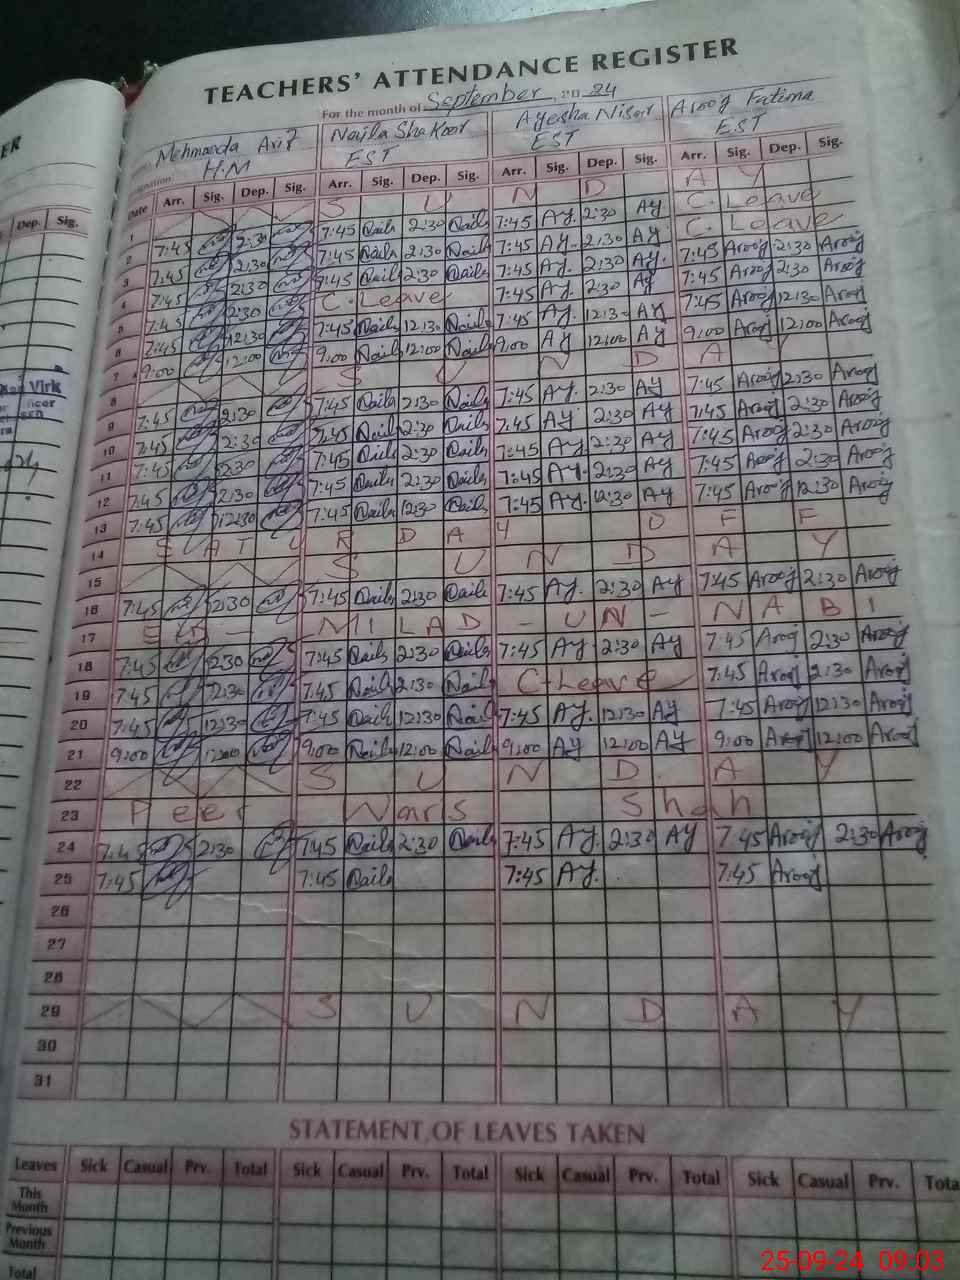 ER
TEACHERS' ATTENDANCE REGISTER
For the month of September 20 24
Mehmooda Arif Naila Shakoor Ayesha Nisar Aroog Fatima
H.M EST EST EST
Dep. Sig.
Date Arr. Sig. Dep. Sig. Arr. Sig. Dep. Sig. Arr. Sig. Dep. Sig. Arr. Sig. Dep. Sig.
1 S U N D A Y
2 7:45 2:30 7:45 Naila 2:30 Naila 7:45 Ay 2:30 Ay C. Leave
3 7:45 2:30 7:45 Naila 2:30 Naila 7:45 Ay. 2:30 Ay. C. Leave
4 7:45 2:30 7:45 Naila 2:30 Naila 7:45 Ay. 2:30 Ay. 7:45 Aroog 2:30 Aroog
5 7:45 2:30 C. Leave 7:45 Ay. 2:30 Ay 7:45 Aroog 2:30 Aroog
6 7:45 12:30 7:45 Naila 12:30 Naila 7:45 Ay. 12:30 Ay 7:45 Aroog 12:30 Aroog
7 9:00 12:00 9:00 Naila 12:00 Naila 9:00 Ay 12:00 Ay 9:00 Aroog 12:00 Aroog
8 S U N D A Y
9 7:45 2:30 7:45 Naila 2:30 Naila 7:45 Ay. 2:30 Ay 7:45 Aroog 2:30 Aroog
10 7:45 2:30 7:45 Naila 2:30 Naila 7:45 Ay 2:30 Ay 7:45 Aroog 2:30 Aroog
11 7:45 2:30 7:45 Naila 2:30 Naila 7:45 Ay 2:30 Ay 7:45 Aroog 2:30 Aroog
12 7:45 2:30 7:45 Naila 2:30 Naila 7:45 Ay. 2:30 Ay 7:45 Aroog 2:30 Aroog
13 7:45 12:30 7:45 Naila 12:30 Naila 7:45 Ay. 12:30 Ay 7:45 Aroog 12:30 Aroog
14 S A T U R D A Y O F F
15 S U N D A Y
16 7:45 2:30 7:45 Naila 2:30 Naila 7:45 Ay. 2:30 Ay 7:45 Aroog 2:30 Aroog
17 EID - MILAD - UN - NABI
18 7:45 2:30 7:45 Naila 2:30 Naila 7:45 Ay 2:30 Ay 7:45 Aroog 2:30 Aroog
19 7:45 2:30 7:45 Naila 2:30 Naila C-Leave 7:45 Aroog 2:30 Aroog
20 7:45 12:30 7:45 Naila 12:30 Naila 7:45 Ay. 12:30 Ay 7:45 Aroog 12:30 Aroog
21 9:00 12:00 9:00 Naila 12:00 Naila 9:00 Ay 12:00 Ay 9:00 Aroog 12:00 Aroog
22 S U N D A Y
23 Peer Waris Shah
24 7:45 2:30 7:45 Naila 2:30 Naila 7:45 Ay. 2:30 Ay 7:45 Aroog 2:30 Aroog
25 7:45 7:45 Naila 7:45 Ay. 7:45 Aroog
26
27
28
29 S U N D A Y
30
31
STATEMENT OF LEAVES TAKEN
Leaves Sick Casual Prv. Total Sick Casual Prv. Total Sick Casual Prv. Total Sick Casual Prv. Tota
This Month
Previous Month
Total
25-09-24 09:03